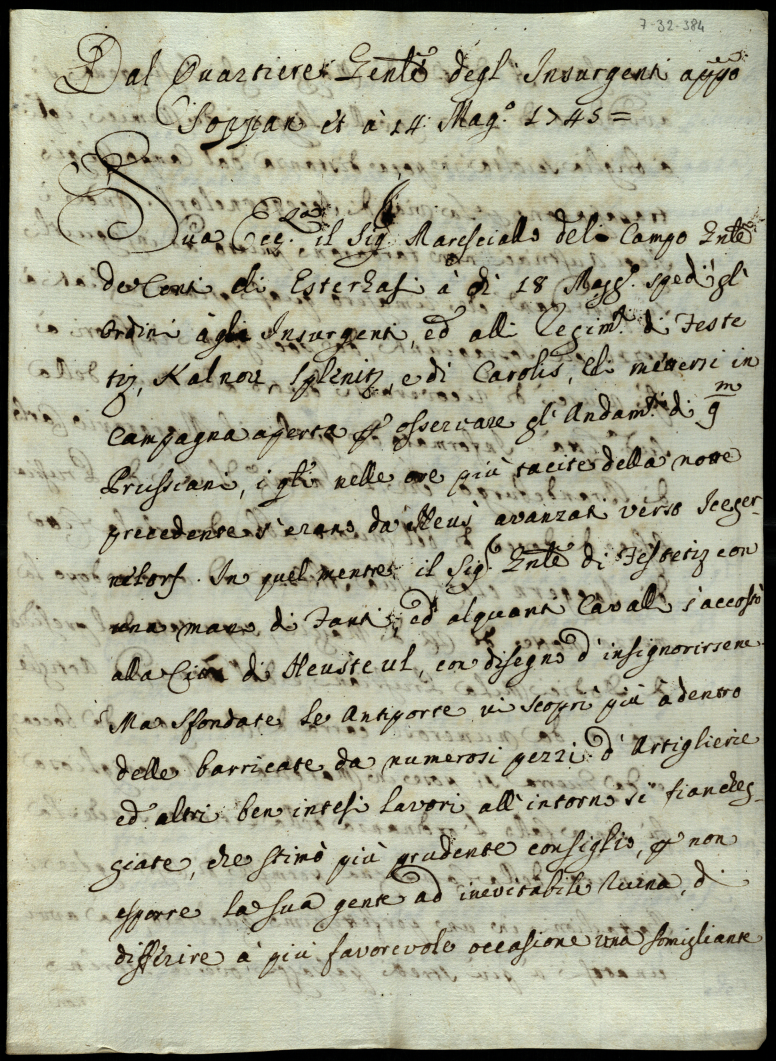 7-32-384
Dal Quartiere Gen̅le degl' Insurgenti app̅o
Soppan et à 14 Mag.º 1745 =
Sua Ecc.za il Sig.r Maresciallo del Campo Gen̅le
de Conti di Esterhasi à di 18 Magg.º spedì gl'
ordini àgli Insurgenti, ed alli Regim.ti di Feste
tiz, Kalnoki, Splenitz, e di Carolis, di mettersi in
campagna aperta p osservare gl' Andam.ti di 9/m
Prussiani, i q̅li nelle ore più tacite della notte
precedente s'erano da Neus avanzati verso
In quel mentre il Sig.r Gen̅le di Festetiz con
una mano di Fanti, ed alquanti Cavalli s'accostò
alla Città di Neusteul, con disegno d' insignorirsene.
Ma sfondate le Antiporte vi scoprì più àdentro
delle barricate da numerosi pezzi d' Artiglierie
ed altri ben intesi Lavori all' intorno sì fiancheg-
giate, che stimò più prudente consiglio, p non
esporre la sua gente ad inevitabile Ruina, di
differire à più favorevole occasione una somigliante